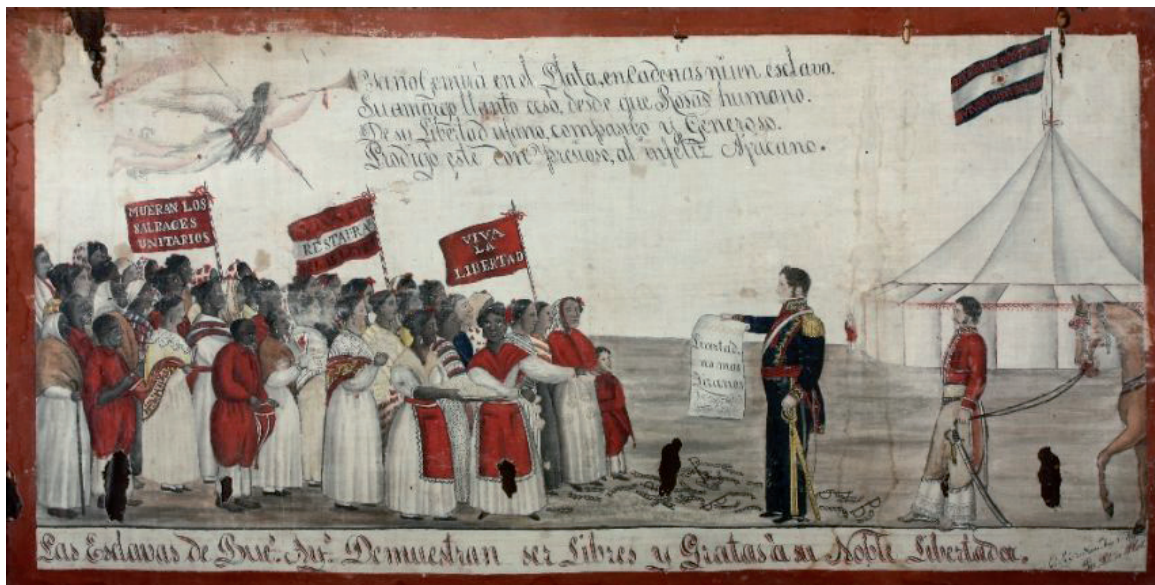 Ya no gemirá en el Plata, en cadenas ni un esclavo.
Su amargo llanto cesó, desde que Rosas humano.
De su Libertad ufano, compasivo y Generoso.
Prodigó este don presioso, al infeliz Africano.
MUERAN LOS
SALBAGES
UNITARIOS
RESTAURA
VIVA
LA
LIBERTAD
Livertad.
no mas
Tiranos
Las Esclavas de Bue.s Ay.s Demuestran ser Libres y Gratas á su Noble Libertador.